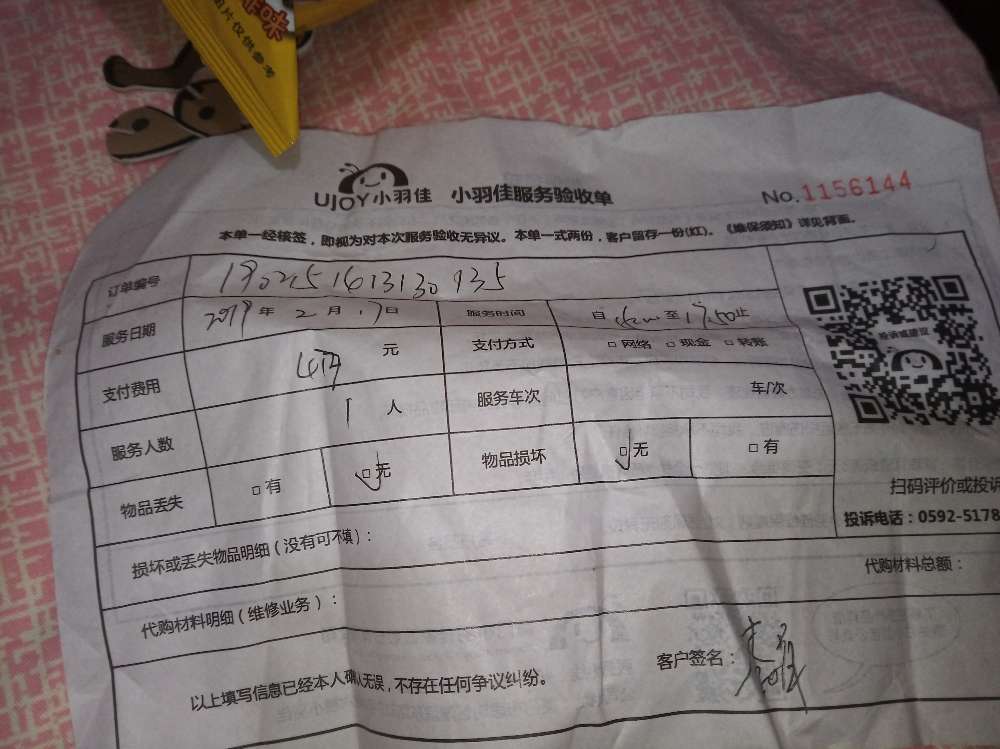 图片仅供参考
UJOY小羽佳 小羽佳服务验收单 No.1156144
本单一经核签，即视为对本次服务验收无异议。本单一式两份，客户留存一份(红)。《维保须知》详见背面。
订单编号
服务日期 2019年 2月 17日 服务时间 自 至 17:50止
支付费用 元 支付方式 □网络 □现金 □转账
服务人数 1 人 服务车次 车/次
物品丢失 □有 □无 物品损坏 □无 □有
投诉或建议
扫码评价或投诉
投诉电话：0592-5178
损坏或丢失物品明细(没有可不填)：
代购材料明细(维修业务)： 代购材料总额：
以上填写信息已经本人确认无误，不存在任何争议纠纷。 客户签名：